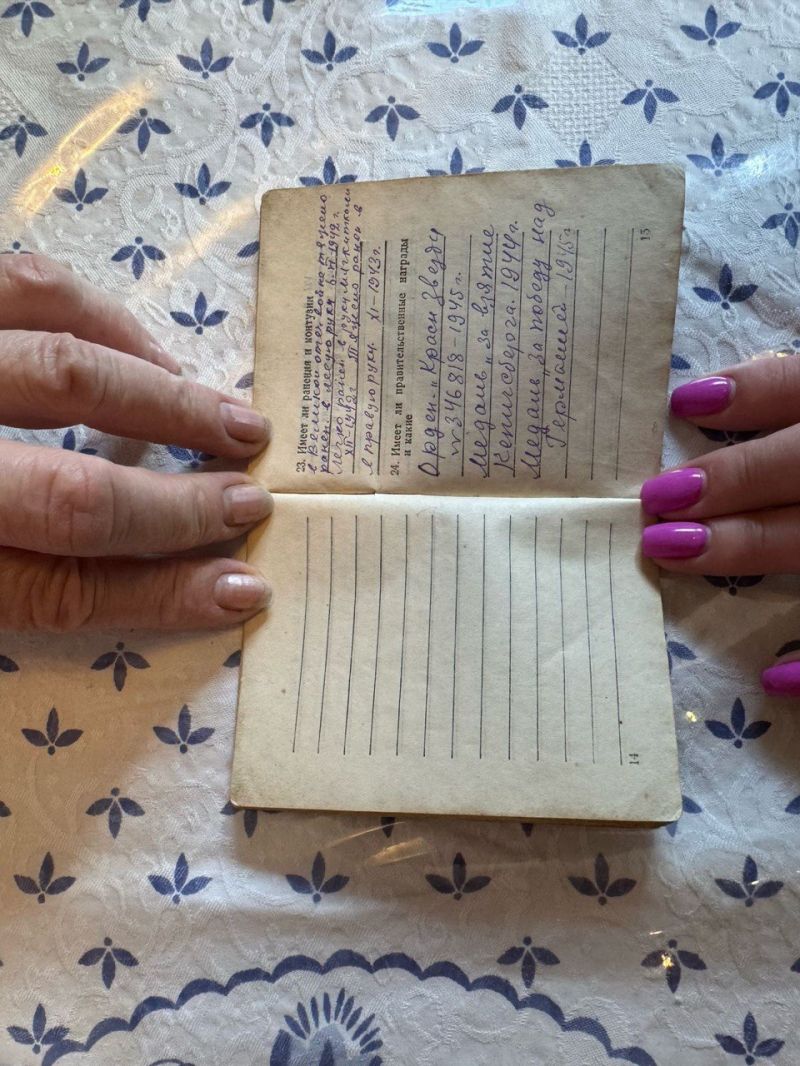 14
23. Имеет ли ранения и контузии
в Великой отеч войне тяжело
ранен в левую руку 6-VI 1942 г.
легко ранен в руку мягкиткани
XII-1942 г. Тяжело ранен в
в правую руку. XI-1943 г.
24. Имеет ли правительственные награды
и какие
Орден „Красн звезду
№ 346818-1945 г.
Медаль „за взятие
Кенигсберга. 1944 г.
Медаль „за победу над
Германией -1945 г
15